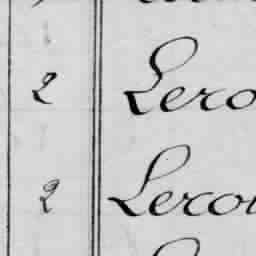 2 Lero
2 Lerou